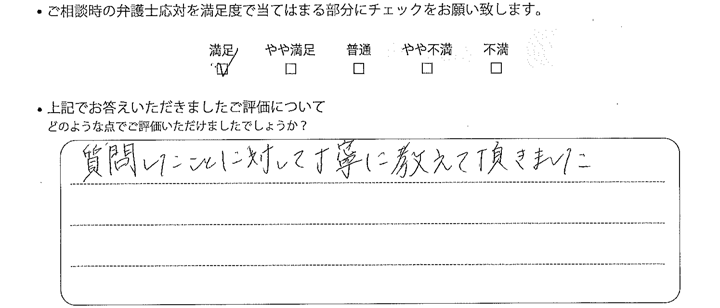 ・ご相談時の弁護士応対を満足度で当てはまる部分にチェックをお願い致します。
満足 やや満足 普通 やや不満 不満
☑ □ □ □ □
・上記でお答えいただきましたご評価について
どのような点でご評価いただけましたでしょうか？
質問したことに対して丁寧に教えて頂きました